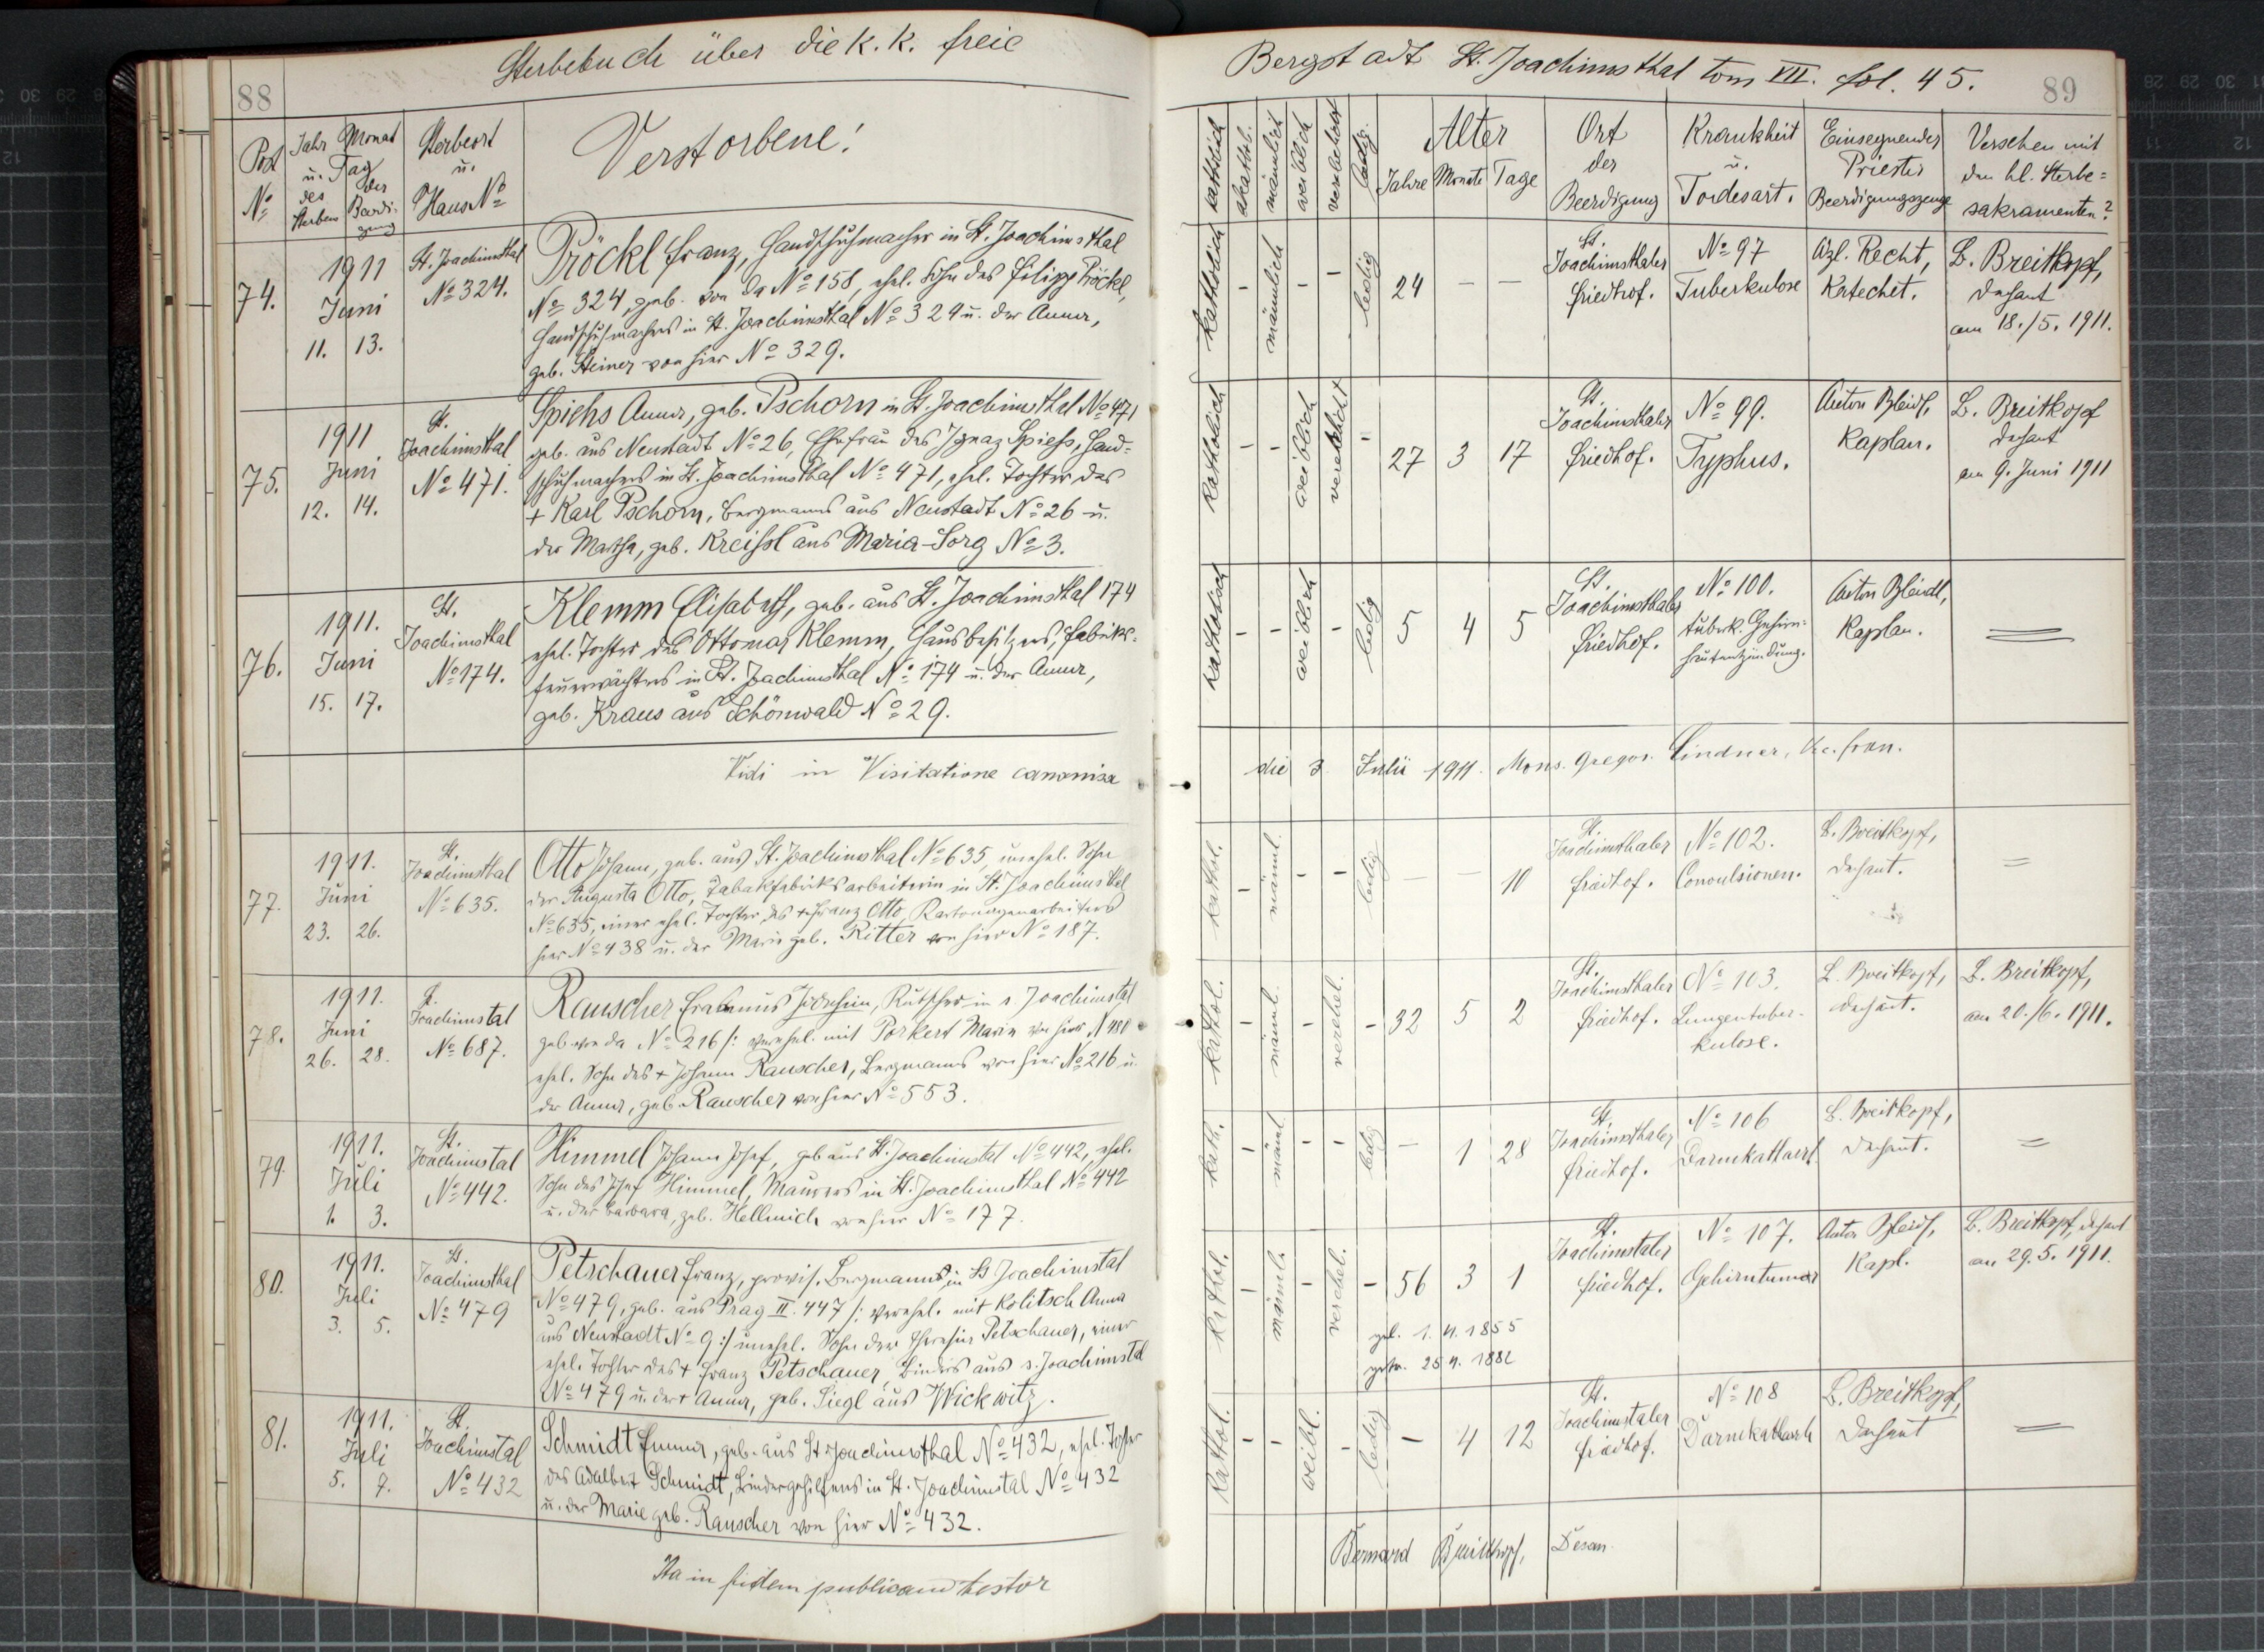 88
Sterbebuch über die k. k. freie
Post
No
Jahr Monat
u. Tag
des
Sterbens
der
Beerdi-
gung
Sterbeort
u.
Haus No
Verstorbene!
74.
1911
Juni
11. 13.
St. Joachimsthal
No 324.
Pröckl Franz, Handschuhmacher in St. Joachimsthal
No 324, geb. von da No 158, ehel. Sohn des Filipp Pröckl,
Handschuhmachers in St. Joachimsthal No 329 u. der Anna,
geb. Steiner von hier No 329.
75.
1911
Juni
12. 14.
St.
Joachimsthal
No 471.
Spiehs Anna, geb. Pschorn in St. Joachimsthal No 471
geb. aus Neustadt No 26, Ehefrau des Ignaz Spiehs, Hand-
schuhmachers in St. Joachimsthal No 471, ehel. Tochter des
+ Karl Pschorn, Bergmanns aus Neustadt No 26 u.
der Martha, geb. Kreißl aus Maria-Sorg No 3.
76.
1911.
Juni
15. 17.
St.
Joachimsthal
No 174.
Klemm Elisabeth, geb. aus St. Joachimsthal 174
ehel. Tochter des Ottomar Klemm, Hausbesitzers, Fabriks-
feuerwächters in St. Joachimsthal No 174 u. der Anna,
geb. Kraus aus Schönwald No 29.
Vidi in Visitatione canonica
77.
1911.
Juni
23. 26.
St.
Joachimsthal
No 635.
Otto Johann, geb. aus St. Joachimsthal No 635, unehel. Sohn
der Augusta Otto, Tabakfabriksarbeiterin in St. Joachimsthal
No 635, einer ehel. Tochter des + Franz Otto, Kartonagenarbeiters
hier No 438 u. der Marie geb. Ritter von hier No 187.
78.
1911.
Juni
26. 28.
St.
Joachimstal
No 687.
Rauscher Erasmus Joachim, Kutscher in s. Joachimstal
geb. von da No 216 /: verehel. mit Porkert Marie von hier N 480
ehel. Sohn des + Johann Rauscher, Bergmanns von hier No 216 u.
der Anna, geb. Rauscher von hier No 553.
79.
1911.
Juli
1. 3.
St.
Joachimstal
No 442.
Himmel Johann Josef, geb. aus St. Joachimstal No 442, ehel.
Sohn des Josef Himmel, Maurers in St. Joachimsthal No 442
u. der Barbara, geb. Hellmich von hier No 177.
80.
1911.
Juli
3. 5.
St.
Joachimsthal
No 479
Petschauer Franz, provis. Bergmanns in St Joachimstal
No 479, geb. aus Prag II. 447 /: verehel. mit Kolitsch Anna
aus Neustadt No 9 :/ unehel. Sohn der Theresia Petschauer, einer
ehel. Tochter des + Franz Petschauer, Binders aus s. Joachimstal
No 479 u. der + Anna, geb. Siegl aus Wickwitz.
81.
1911.
Juli
5. 7.
St.
Joachimstal
No 432
Schmidt Emma, geb. aus St Joachimsthal No 432, ehel. Tochter
des Adalbert Schmidt, Bindergehilfens in St. Joachimstal No 432
u. der Marie geb. Rauscher von hier No 432.
Ita in fidem publicam testor
Bergstadt St. Joachimsthal tom VII. fol. 45.
89
katholich
akathol.
männlich
weiblich
verehelicht
ledig.
Alter
Jahre Monate Tage
Ort
der
Beerdigung
Krankheit
u.
Todesart.
Einsegnender
Priester
Beerdigungszeuge
Versehen mit
den hl. Sterbe=
sakramenten?
katholich - männlich - - ledig
24 — —
St.
Joachimsthaler
Friedhof.
No 97
Tuberkulose
Recht,
Katechet.
B. Breitkopf,
Dechant
am 18./5. 1911.
katholich - - weiblich verehelicht -
27 3 17
St.
Joachimsthaler
Friedhof.
No 99.
Typhus.
Anton Bleidl,
Kaplan.
B. Breitkopf
Dechant
am 9. Juni 1911
katholisch - - weiblich - ledig
5 4 5
St.
Joachimsthaler
Friedhof.
No 100.
tuberk. Gehirn-
hautentzündung.
Anton Bleidl,
Kaplan.
=
die 3 Julii 1911. Mons. Gregor. Lindner,
kathol. - männl. - - ledig
— — 10
St.
Joachimsthaler
Friedhof.
No 102.
Convulsionen.
B. Breitkopf,
Dechant.
=
kathol. - männl. - verehel. -
32 5 2
St.
Joachimsthaler
Friedhof.
No 103.
Lungentuber-
kulose.
B. Breitkopf,
Dechant.
B. Breitkopf,
am 20./6. 1911.
kath. - männl. - - ledig
— 1 28
St.
Joachimsthaler
Friedhof.
No 106
Darmkattarrh
B. Breitkopf,
Dechant.
=
kathol. - männl. - verehel. -
56 3 1
geb. 1. 4. 1855
getr. 25 4. 1882
St.
Joachimstaler
Friedhof.
No 107.
Gehirntumor
Anton Bleidl,
Kapl.
B. Breitkopf, Dechant
am 29. 5. 1911.
kathol. - - weibl. - ledig
— 4 12
St.
Joachimstaler
Friedhof.
No 108
Darmkattarrh
B. Breitkopf,
Dechant
=
Bernard Breitkopf, Decan